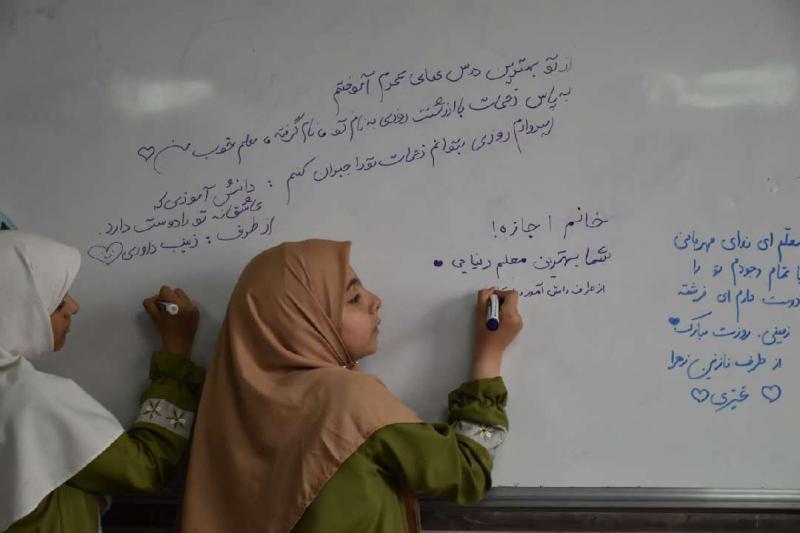 از تو بهترین درس های عمرم آموختم
به پاس زحمات با ارزشت روزی به نام تو، نام گرفته، معلم خوب من ♡
امیدوارم روزی بتوانم زحمات تو را جبران کنم
: دانش آموزی که
عاشقانه تو را دوست دارد.
از طرف : زینب داوری ♡
خانم اجازه!
شما بهترین معلم دنیایی
از طرف دانش آموز
معلم ای ندای مهربانی
با تمام وجودم تو را
دوست دارم ای فرشته
زمینی. روزت مبارک
از طرف نازنین زهرا
♡ ♡